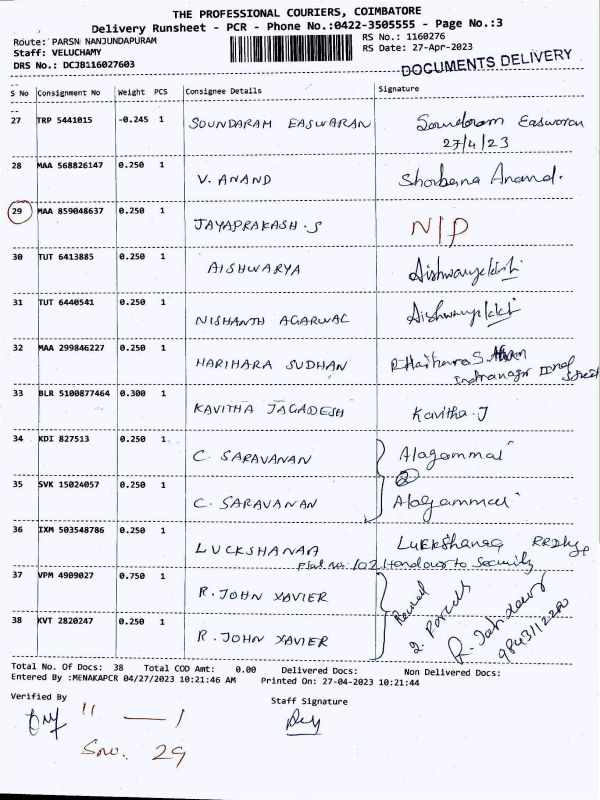 THE PROFESSIONAL COURIERS, COIMBATORE
Delivery Runsheet - PCR - Phone No.:0422-3505555 - Page No.:3
Route: PARSN NANJUNDAPURAM RS No.: 1160276
Staff: VELUCHAMY RS Date: 27-Apr-2023
DRS No.: DCJB116027603 DOCUMENTS DELIVERY
S No Consignment No Weight PCS Consignee Details Signature
27 TRP 5441015 -0.245 1 SOUNDARAM EASWARAN Soundaram Easwaran
27/4/23
28 MAA 568826147 0.250 1 V. ANAND Shobana Anand.
29 MAA 859048637 0.250 1 JAYAPRAKASH.S N/P
30 TUT 6413885 0.250 1 AISHWARYA
31 TUT 6440541 0.250 1 NISHANTH AGARWAL
32 MAA 299846227 0.250 1 HARIHARA SUDHAN
33 BLR 5100877464 0.300 1 KAVITHA JAGADESH Kavitha.J
34 KDI 827513 0.250 1 C. SARAVANAN Alagammai
2
35 SVK 15024057 0.250 1 C. SARAVANAN Alagammai
36 IXM 503548786 0.250 1 LUCKSHANAA
Flat no. 102 Handover to Security
37 VPM 4909027 0.750 1 R. JOHN XAVIER
2 Parcels
38 KVT 2820247 0.250 1 R. JOHN XAVIER
Total No. Of Docs: 38 Total COD Amt: 0.00 Delivered Docs: Non Delivered Docs:
Entered By :MENAKAPCR 04/27/2023 10:21:46 AM Printed On: 27-04-2023 10:21:44
Verified By Staff Signature
" — 1
Sno. 29